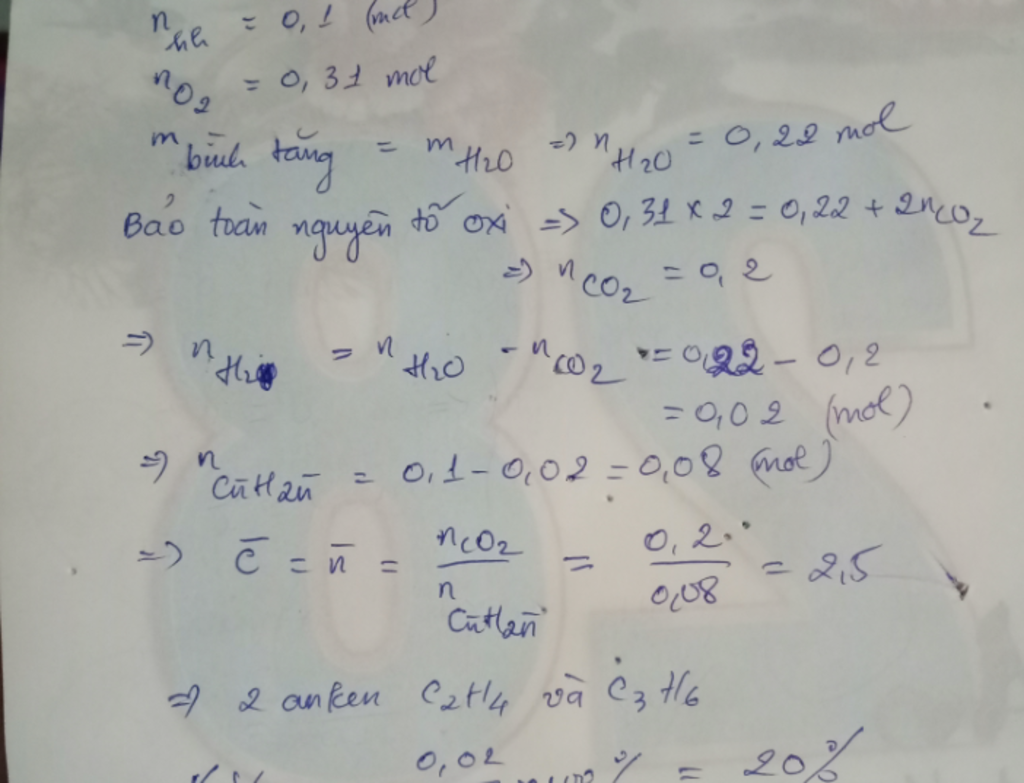 n_hh = 0,1 (mol)
n_O2 = 0,31 mol
m bình tăng = m_H2O => n_H2O = 0,22 mol
Bảo toàn nguyên tố oxi => 0,31 x 2 = 0,22 + 2n_CO2
=> n_CO2 = 0,2
=> n_H2 = n_H2O - n_CO2 = 0,22 - 0,2
= 0,02 (mol)
=> n_Cn̄H2n̄ = 0,1 - 0,02 = 0,08 (mol)
=> C̄ = n̄ = n_CO2 / n_Cn̄H2n̄ = 0,2 / 0,08 = 2,5
=> 2 anken C2H4 và C3H6
0,02 % = 20%